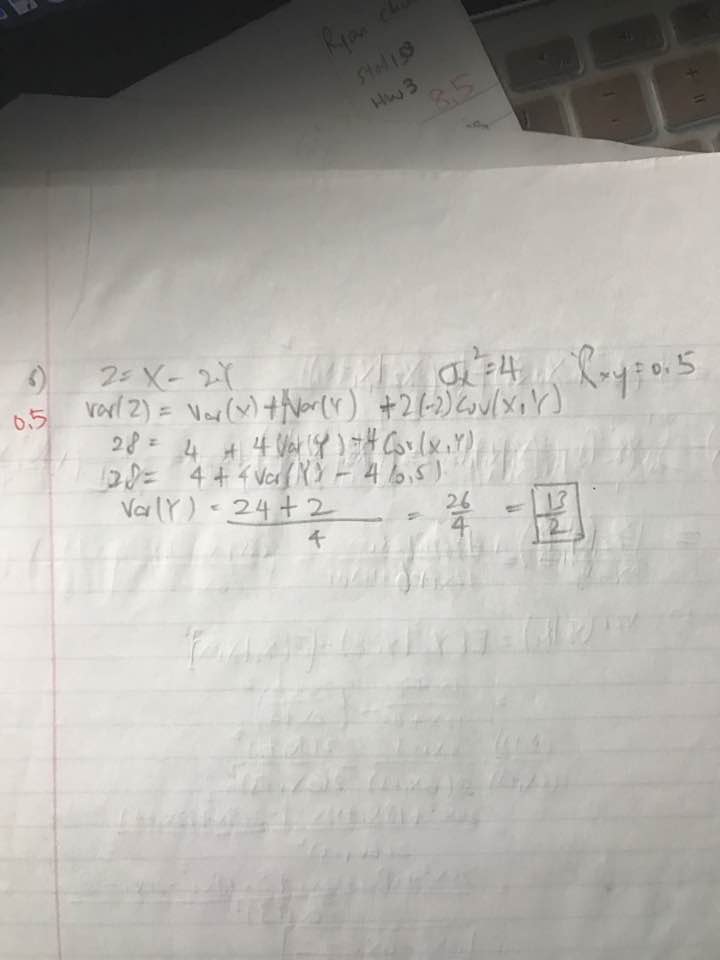 Ryan
HW3
8.5
Z = X - 2Y
σx² = 4
Rxy = 0.5
0.5
Var(Z) = Var(X) + 4Var(Y) + 2(-2)Cov(X,Y)
28 = 4 + 4Var(Y) - 4Cov(X,Y)
28 = 4 + 4Var(Y) - 4(0.5)
Var(Y) = 24 + 2 / 4 = 26/4 = 13/2